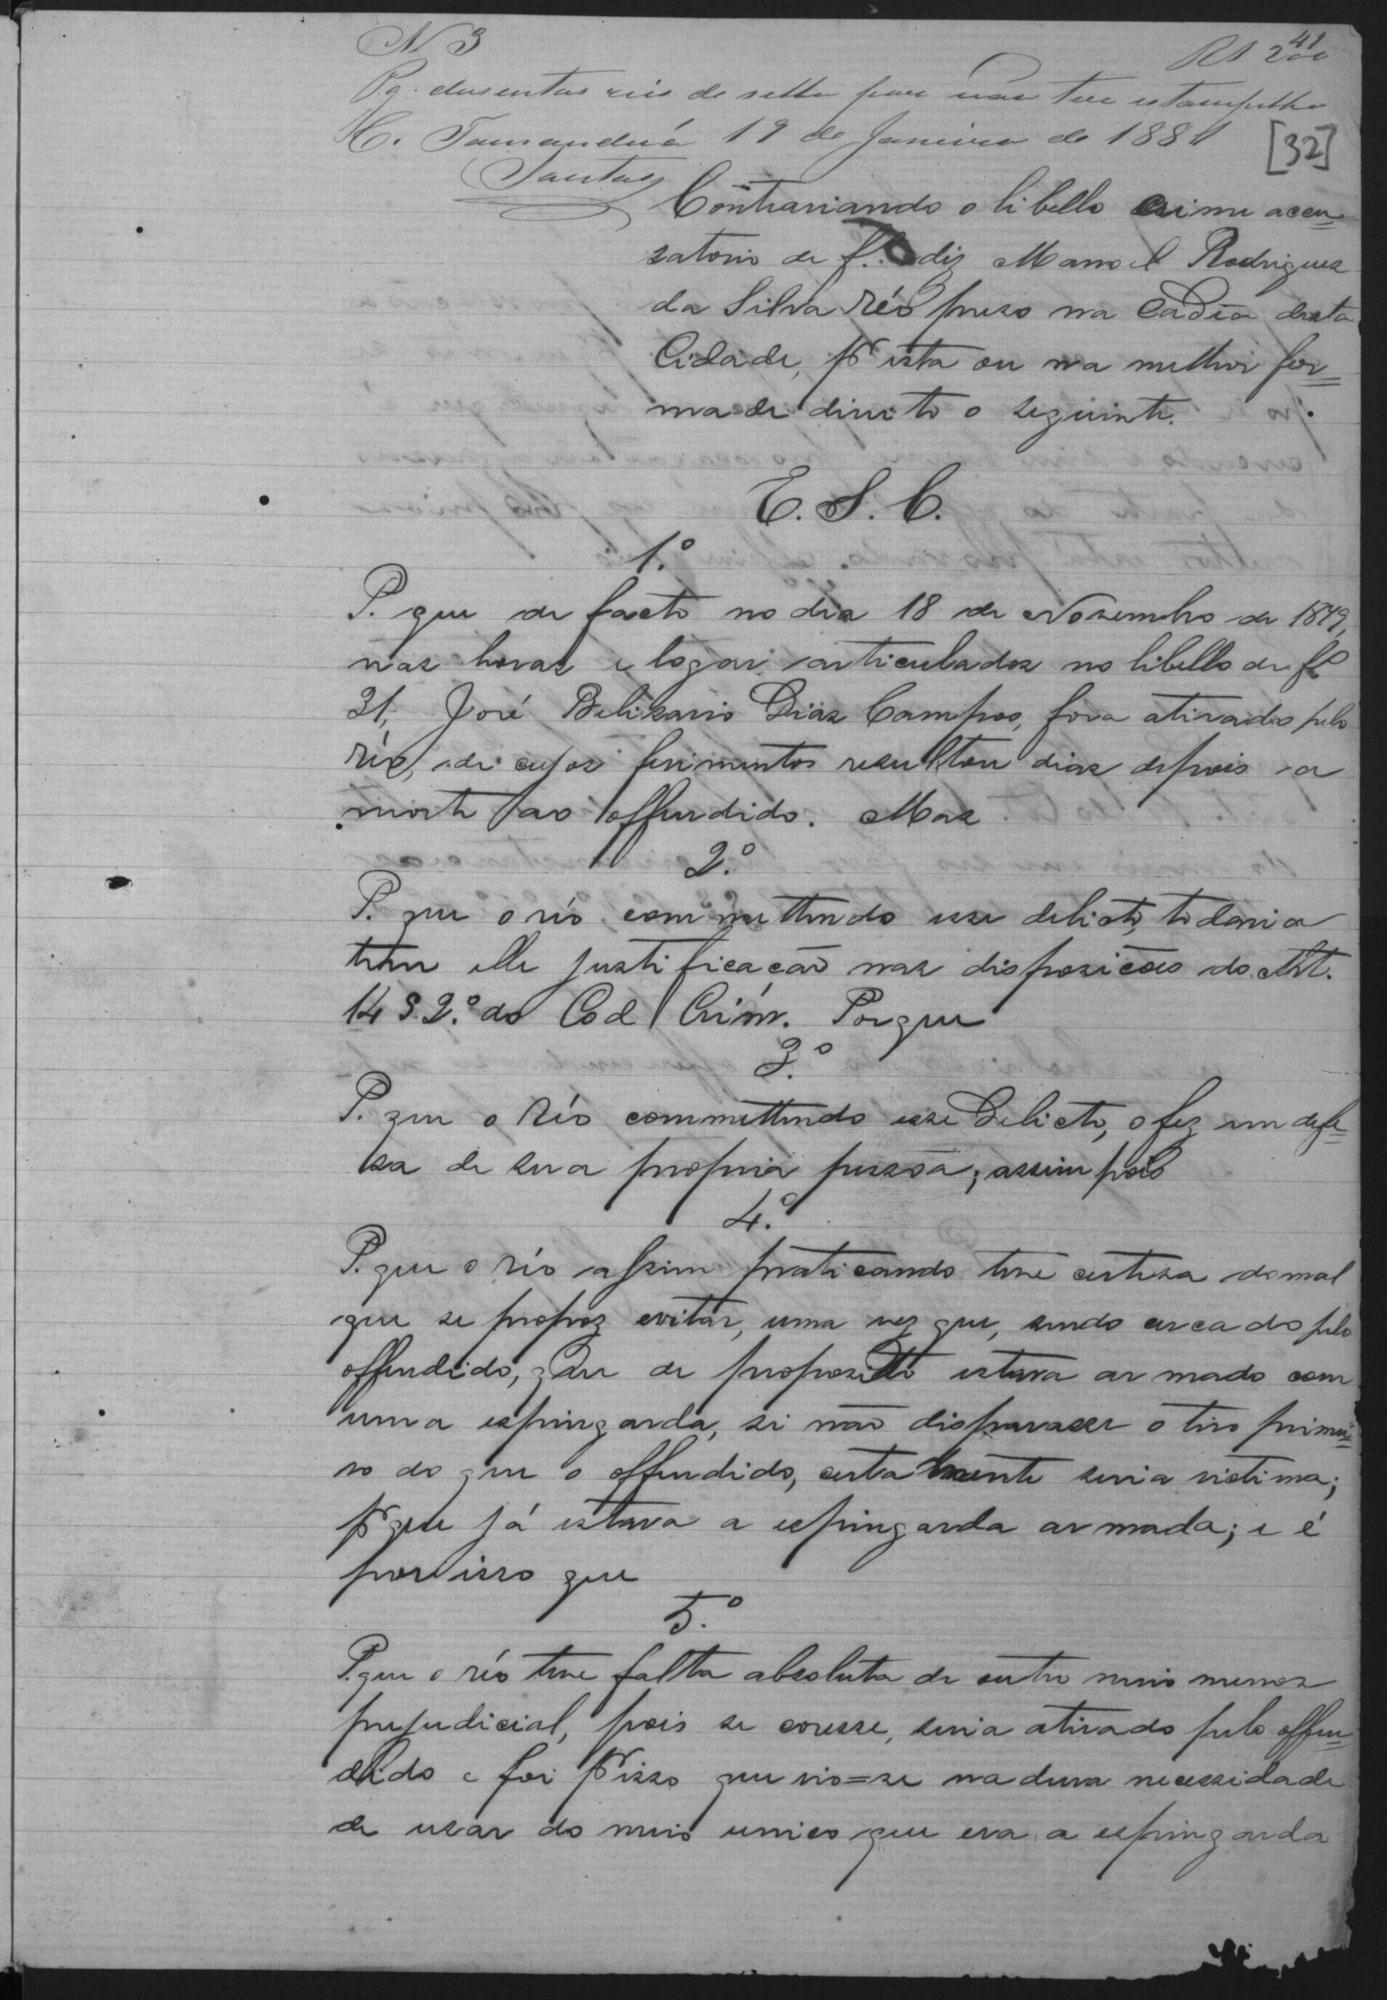 N 3
41
Rs 200
Pg. dusentos reis de sello por não ter estampilha
C. Tamanduá 19 de Janeiro de 1881
[32]
Santos
Contrariando o libello crime accu=
satorio de f. diz Manoel Rodrigues
da Silva réo preso na Cadêa desta
Cidade, pr esta ou na melhor for=
ma de direito o seguinte.
E. S. C.
1.º
P. que de facto no dia 18 de Novembro de 1879,
nas horas e logar articulados no libello de fº
31, José Belizario Dias Campos, fora atirado pelo
réo, de cujos ferimentos resultou dias depois a
morte ao offendido. Mas
2.º
P. que o réo commettendo esse delicto, todavia
tem elle justificação nas disposições do Art.
14 § 2.º do Cod Crim. Porque
3.º
P. que o réo commettendo esse delicto, o fez em defe=
sa de sua propria pessôa; assim pois
4.º
P. que o réo assim praticando teve certesa do mal
que se propoz evitar, uma vez que, sendo cercado pelo
offendido, que de proposito estava armado com
uma espingarda, si não disparasse o tiro primei=
ro do que o offendido, certamente seria victima;
pr que já estava a espingarda armada; e é
por isso que
5.º
P. que o réo teve falta absoluta de outro meio menos
prejudicial, pois se coresse, seria atirado pelo offen=
dido e foi pr isso que vio=se na dura necessidade
de usar do meio unico que era a espingarda